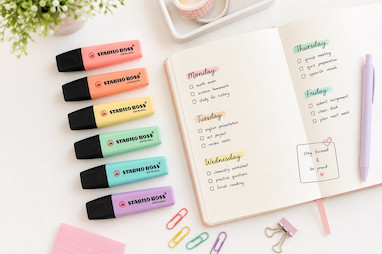 STABILO BOSS
ORIGINAL
STABILO BOSS
ORIGINAL
STABILO BOSS
ORIGINAL
STABILO BOSS
ORIGINAL
STABILO BOSS
ORIGINAL
STABILO BOSS
ORIGINAL
Monday
math exam
science homework
study for history
Tuesday
english presentation
art project
review notes
Wednesday
chemistry worksheet
practice questions
finish reading
Thursday
group meeting
quiz preparation
spanish vocab
Friday
submit assignment
clean desk
plan next week
stay focused
&
be proud